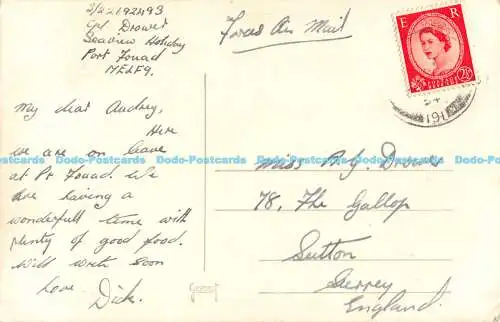 S/22192493
Cpl Drowes
Seaview Holiday
Port Fouad
M.E.L.F 9.
My dear Audrey,
Here
we are on leave
at Pt Fouad We
are having a
wonderfull time with
plenty of good food.
Will write soon
Love Dick.
Forces Air Mail
E R
2½D
POSTAGE REVENUE
191
Miss A. G. Drowes
78, The Gallop
Sutton
Surrey
England.
Dodo-Postcards Dodo-Postcards Dodo-Postcards Dodo-Postcards Dodo-Postcards Dodo-Postcards